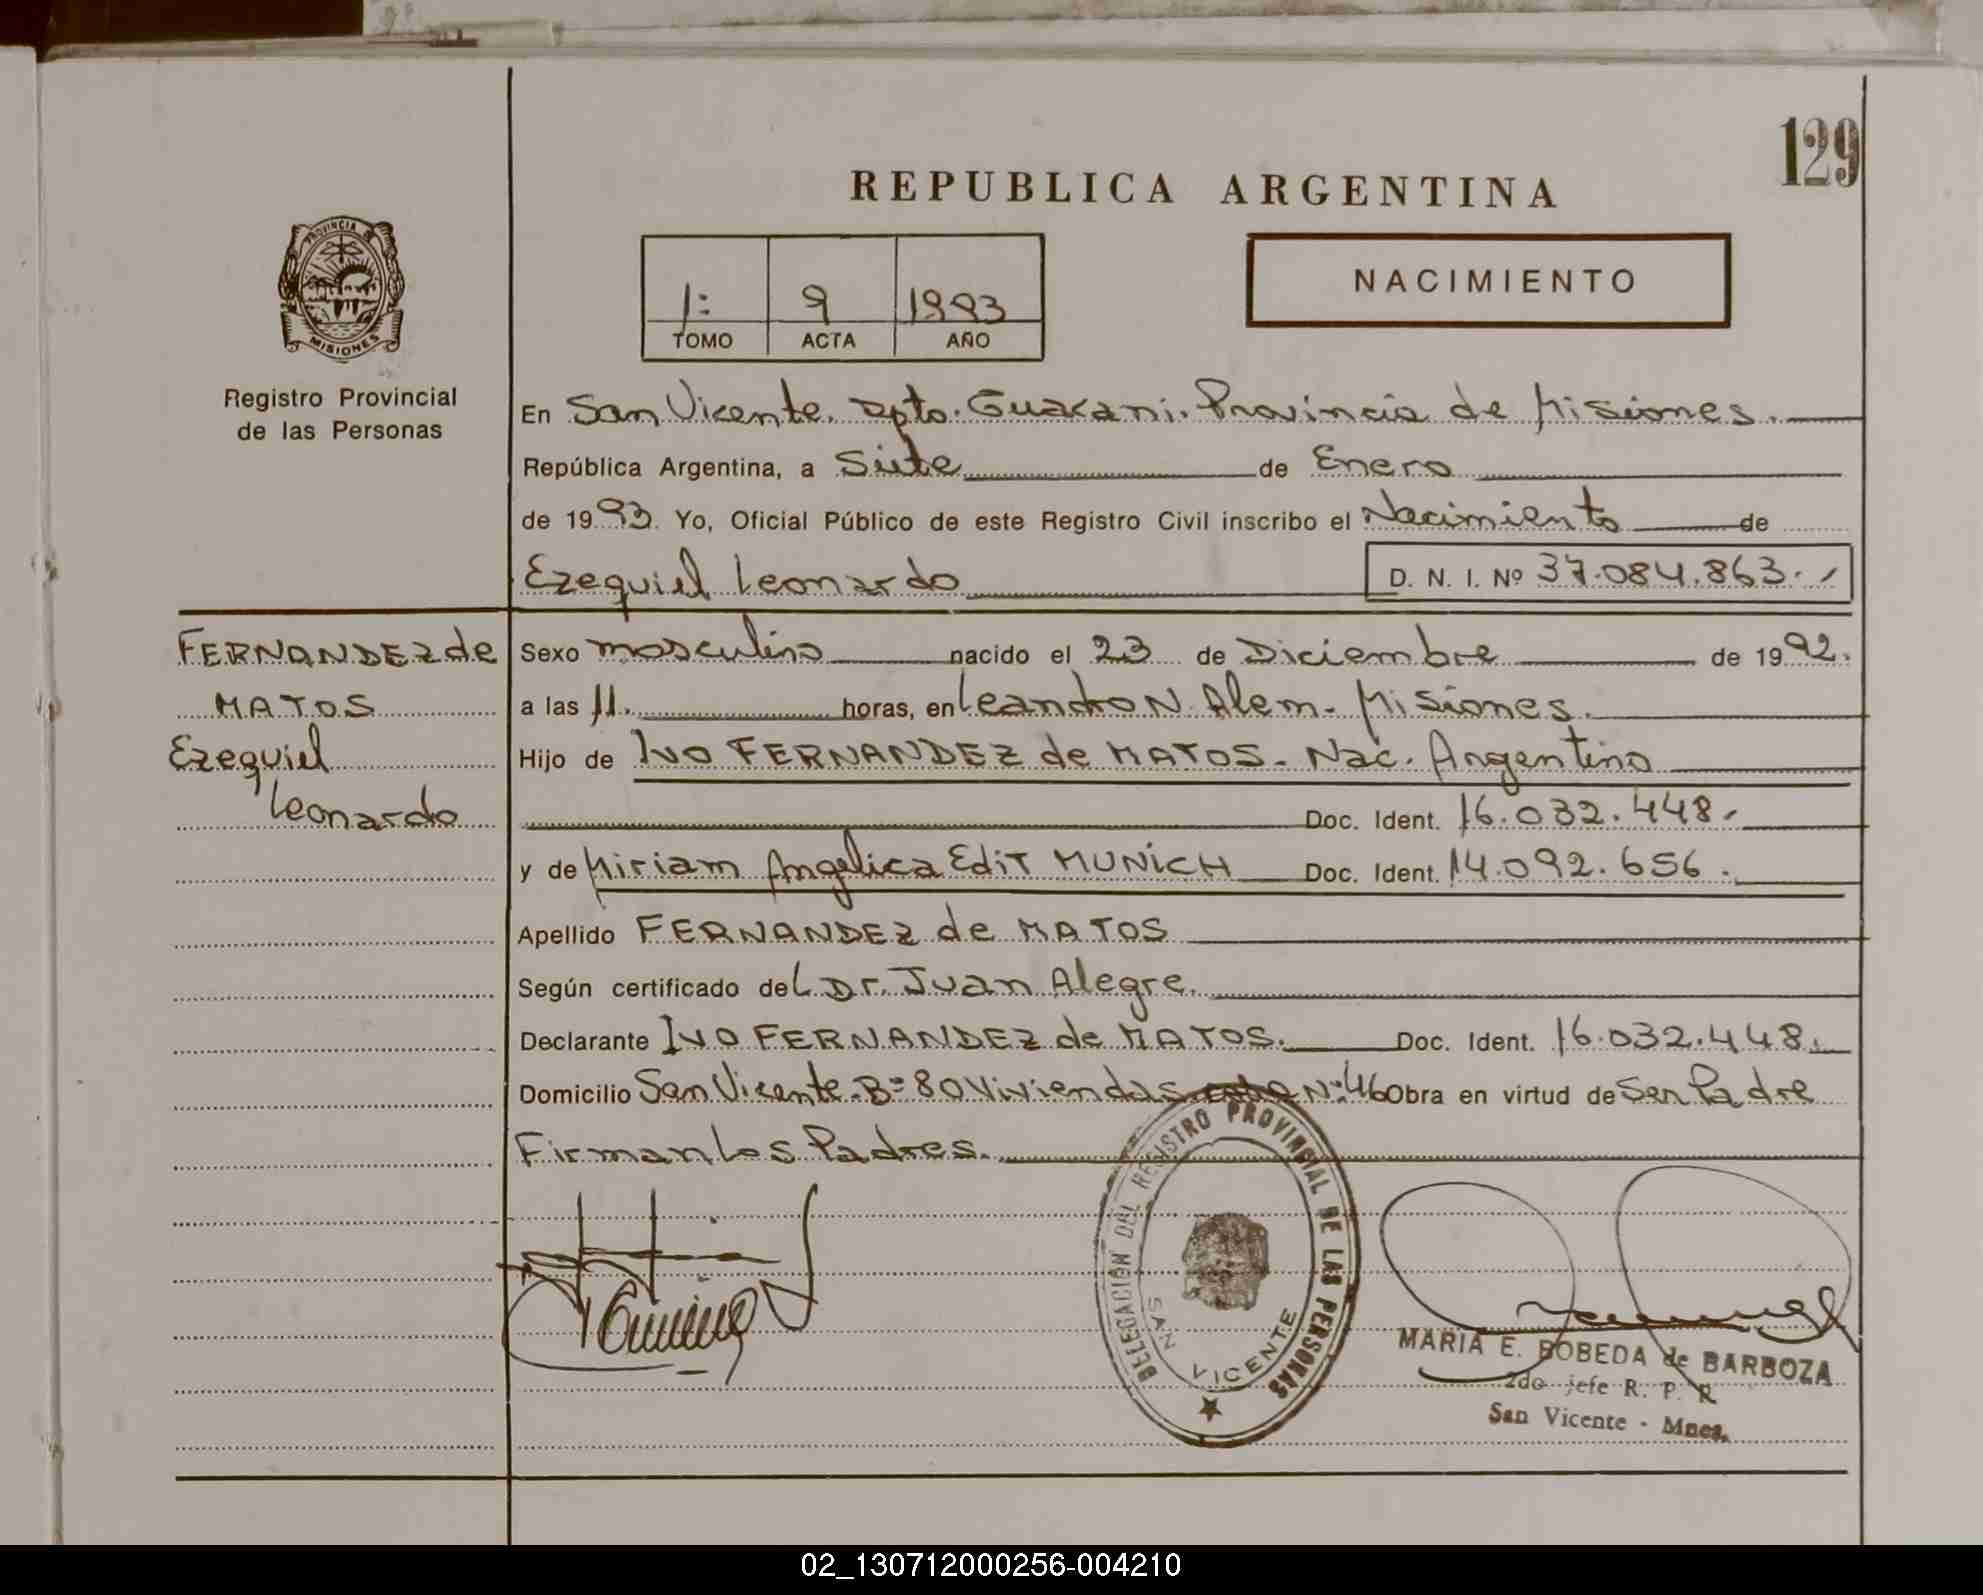 129
REPUBLICA ARGENTINA
PROVINCIA DE
MISIONES
Registro Provincial
de las Personas
1: 9 1993
TOMO ACTA AÑO
NACIMIENTO
En San Vicente. Dpto. Guarani. Provincia de Misiones.
República Argentina, a Siete de Enero
de 1993. Yo, Oficial Público de este Registro Civil inscribo el Nacimiento de
Ezequiel Leonardo D. N. I. Nº 37.084.863.
FERNANDEZ de
MATOS
Ezequiel
Leonardo
Sexo masculino nacido el 23 de Diciembre de 1992.
a las 11. horas, en Leandro N. Alem. Misiones.
Hijo de Ivo FERNANDEZ de MATOS. Nac. Argentino
Doc. Ident. 16.032.448.
y de Miriam Angelica Edit MUNICH Doc. Ident. 14.092.656.
Apellido FERNANDEZ de MATOS
Según certificado del Dr. Juan Alegre.
Declarante IVO FERNANDEZ de MATOS. Doc. Ident. 16.032.448.
Domicilio San Vicente. Bº 80 Viviendas Nº 46 Obra en virtud de Ser Padre
Firman los Padres.
DELEGACIÓN DEL REGISTRO PROVINCIAL DE LAS PERSONAS
SAN VICENTE
MARIA E. BOBEDA de BARBOZA
2do jefe R. P. R
San Vicente - Mnes.
02_130712000256-004210